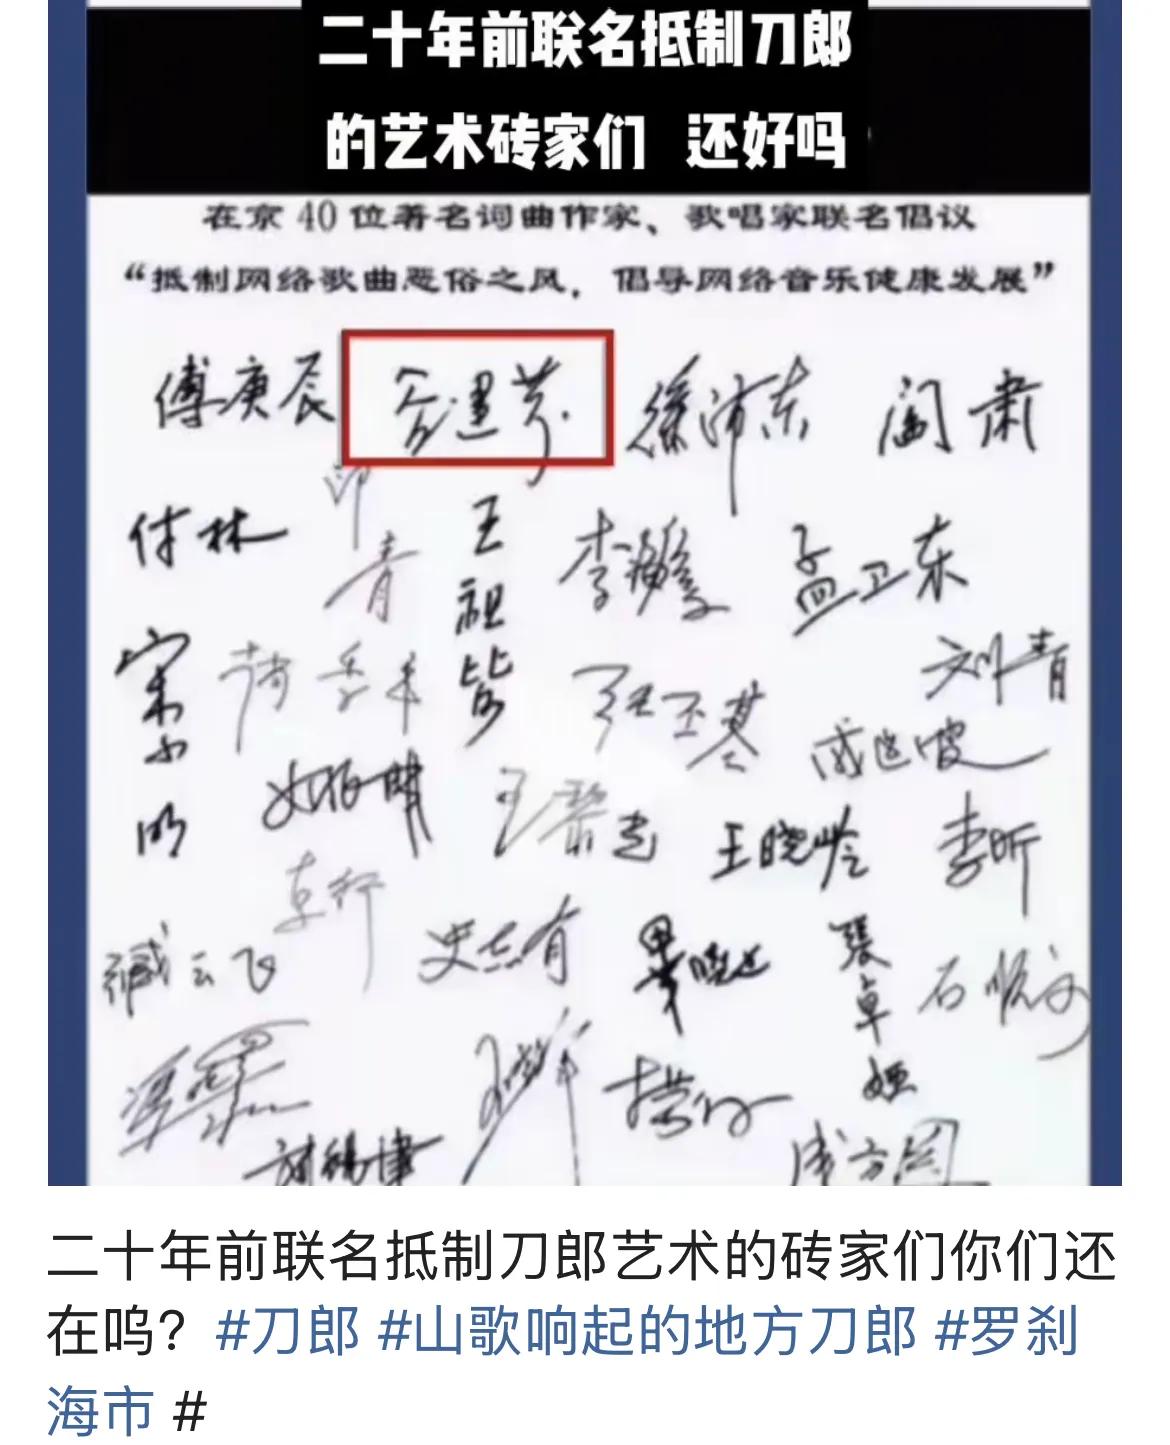 二十年前联名抵制刀郎
的艺术砖家们 还好吗
在京 40 位著名词曲作家、歌唱家联名倡议
“抵制网络歌曲恶俗之风，倡导网络音乐健康发展”
傅庚辰 谷建芬 徐沛东 阎肃
付林 印青 王祖皆 李海鹰 孟卫东
宋小明 刘青
王晓岭 李昕
臧云飞 史志有 张卓娅 石顺义
成方圆
二十年前联名抵制刀郎艺术的砖家们你们还
在呜？#刀郎 #山歌响起的地方刀郎 #罗刹
海市 #